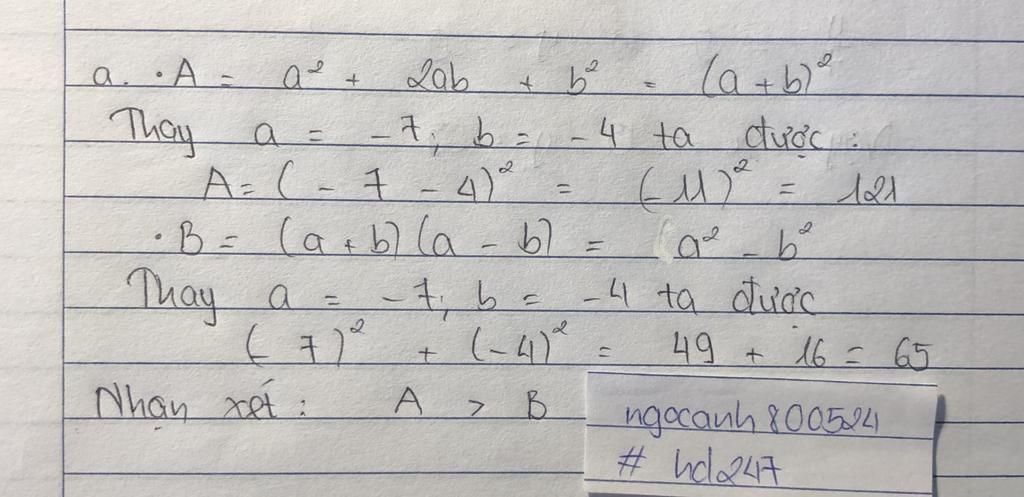 a. · A = a² + 2ab + b² = (a + b)²
Thay a = -7; b = -4 ta được:
A = (-7 - 4)² = (-11)² = 121
· B = (a + b)(a - b) = a² - b²
Thay a = -7; b = -4 ta được
(-7)² + (-4)² = 49 + 16 = 65
Nhận xét: A > B
ngocanh800524
# hd247